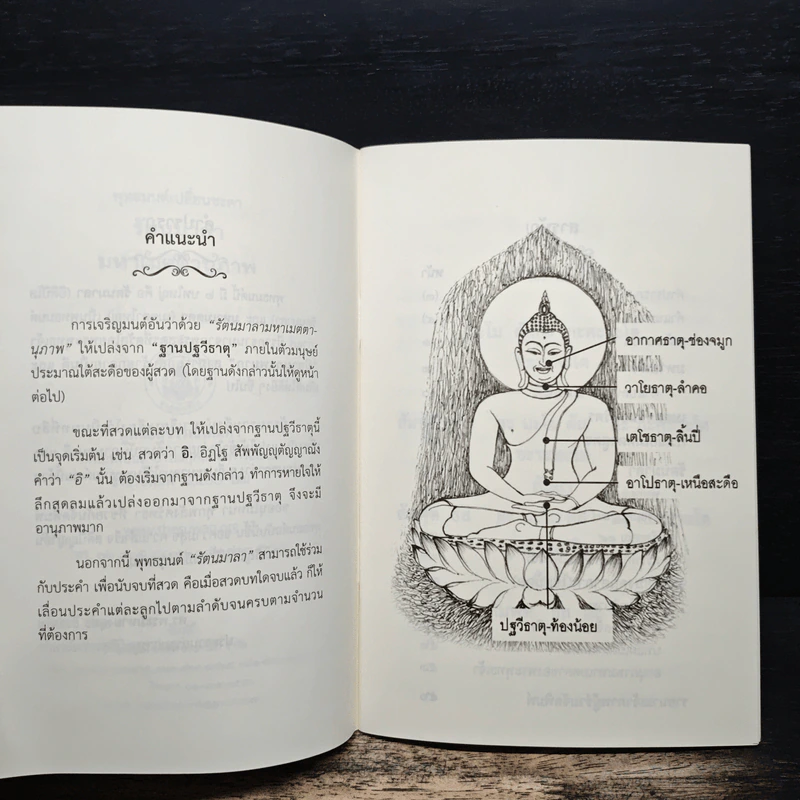 คำแนะนำ
การเจริญมนต์อันว่าด้วย “รัตนมาลามหาเมตตา-
นุภาพ” ให้เปล่งจาก “ฐานปฐวีธาตุ” ภายในตัวมนุษย์
ประมาณใต้สะดือของผู้สวด (โดยฐานดังกล่าวนั้นให้ดูหน้า
ต่อไป)
ขณะที่สวดแต่ละบท ให้เปล่งจากฐานปฐวีธาตุนี้
เป็นจุดเริ่มต้น เช่น สวดว่า อิ. อิฏโฐ สัพพัญญุตัญญาณัง
คำว่า “อิ” นั้น ต้องเริ่มจากฐานดังกล่าว ทำการหายใจให้
ลึกสุดลมแล้วเปล่งออกมาจากฐานปฐวีธาตุ จึงจะมี
อานุภาพมาก
นอกจากนี้ พุทธมนต์ “รัตนมาลา” สามารถใช้ร่วม
กับประคำ เพื่อนับจบที่สวด คือเมื่อสวดบทใดจบแล้ว ก็ให้
เลื่อนประคำแต่ละลูกไปตามลำดับจนครบตามจำนวน
ที่ต้องการ
อากาศธาตุ-ช่องจมูก
วาโยธาตุ-ลำคอ
เตโชธาตุ-ลิ้นปี่
อาโปธาตุ-เหนือสะดือ
ปฐวีธาตุ-ท้องน้อย